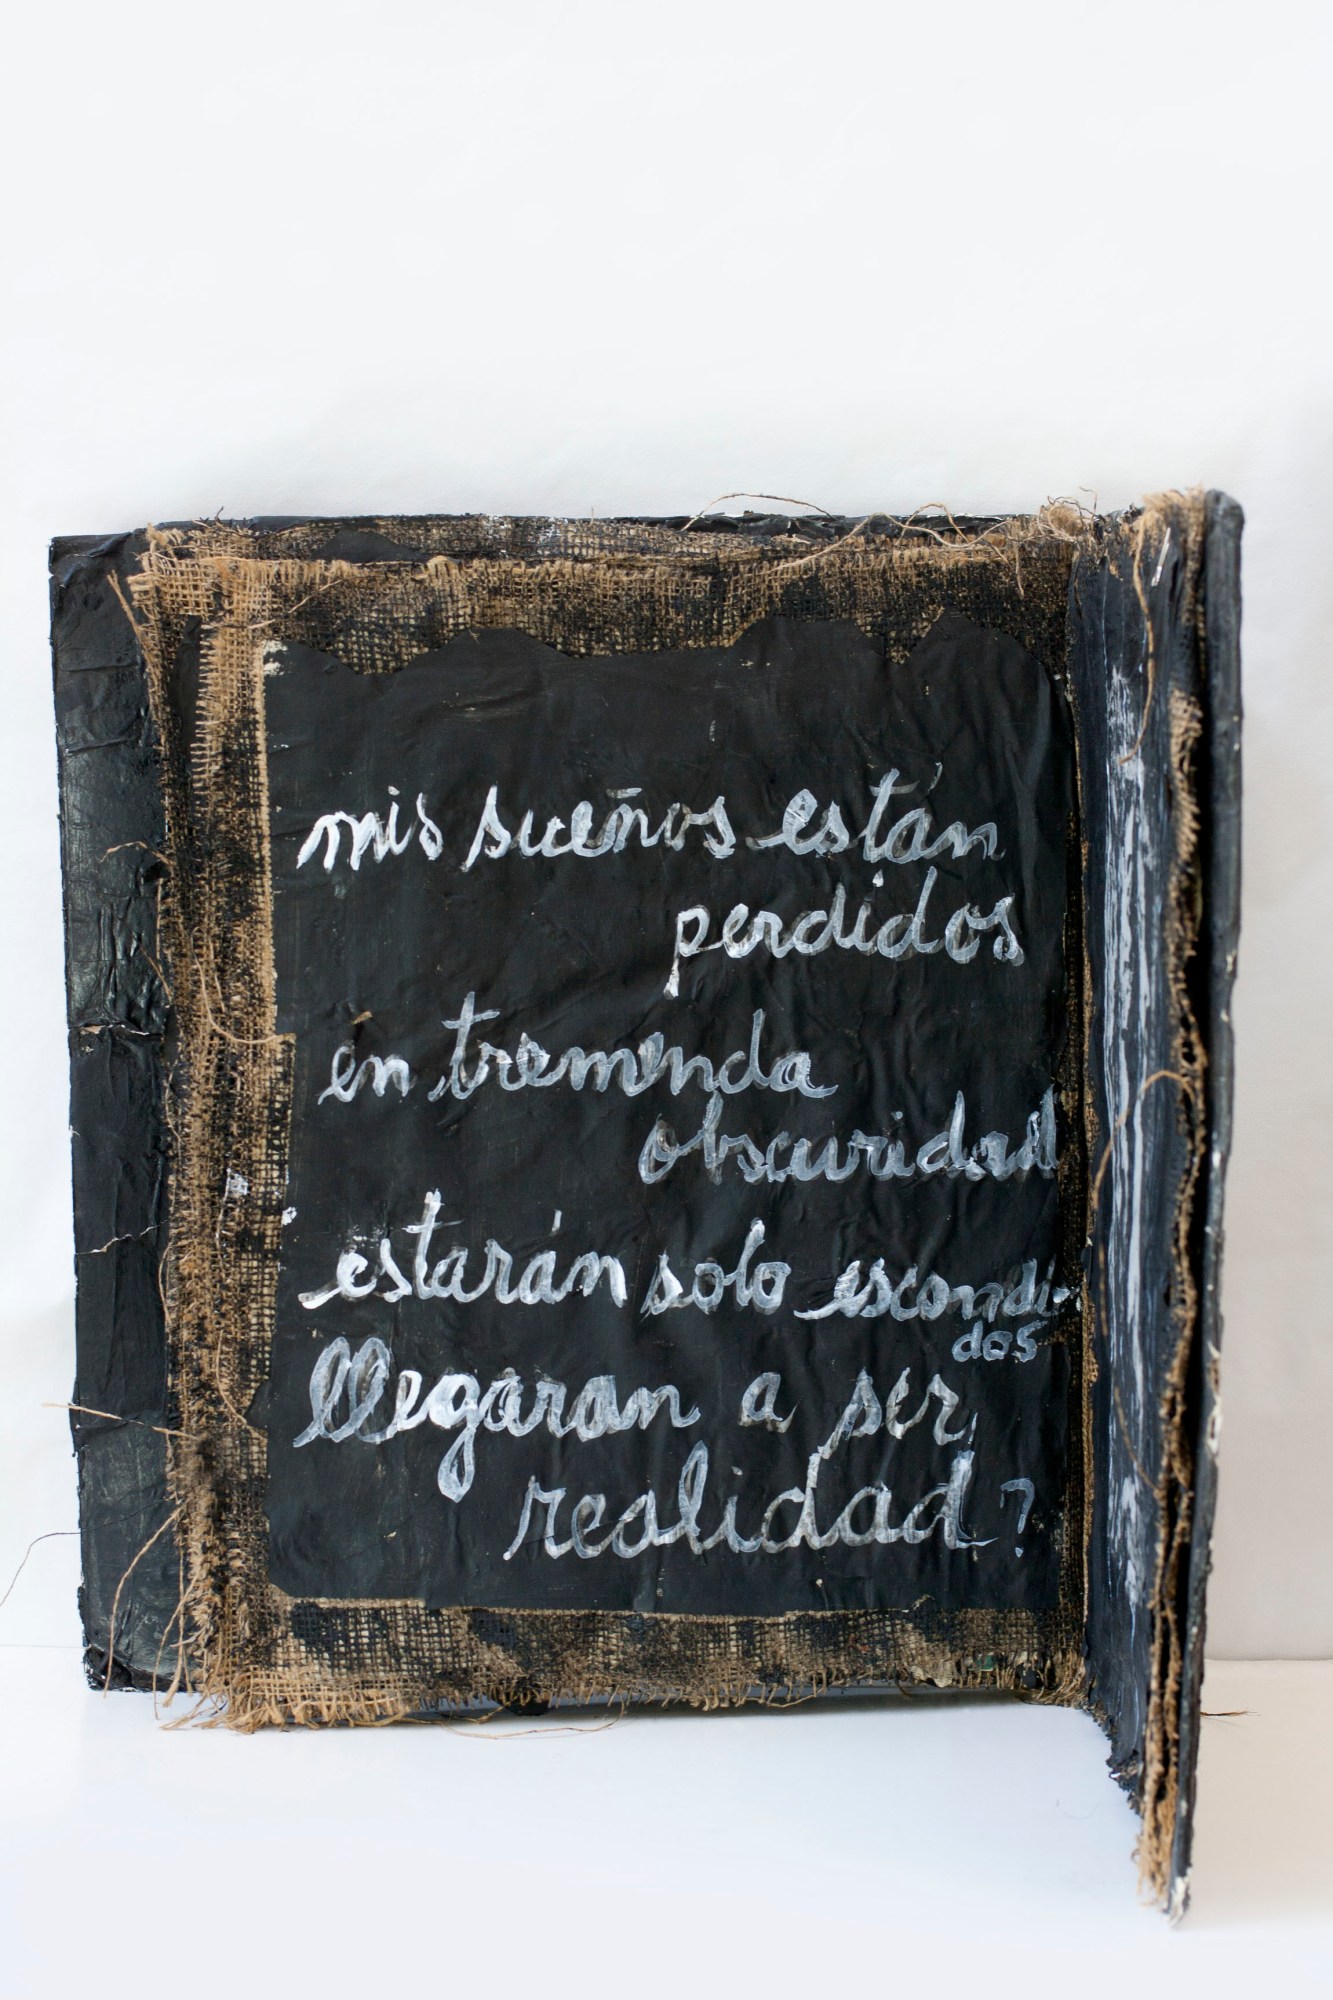 mis sueños están
perdidos
en tremenda
obscuridad
estarán solo escondi-
dos
llegaran a ser
realidad?